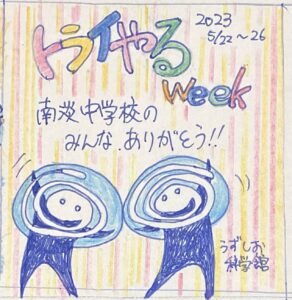 トライやる
week
2023
5/22〜26
南淡中学校の
みんな、ありがとう!!
うずしお
科学館